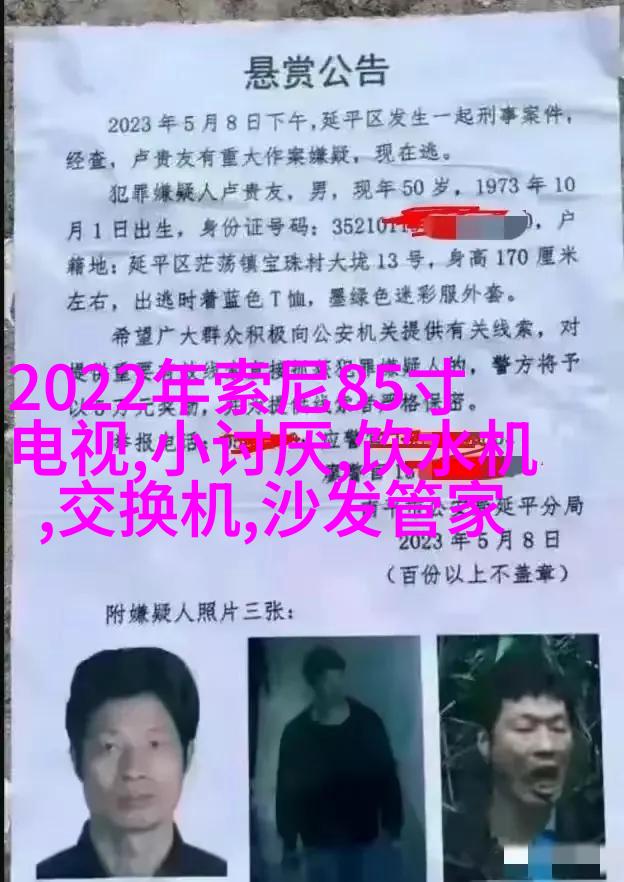 悬赏公告
2023年5月8日下午,延平区发生一起刑事案件,
经查，卢贵友有重大作案嫌疑，现在逃。
犯罪嫌疑人卢贵友，男，现年50岁，1973年10
月1日出生，身份证号码：3521011，户
籍地：延平区茫荡镇宝珠村大垅13号，身高170厘米
左右，出逃时着蓝色T恤，墨绿色迷彩服外套。
希望广大群众积极向公安机关提供有关线索，对
提供重要犯罪嫌疑人的，警方将予
以万元奖励，严格保密。
2022年索尼85寸
电视,小讨厌,饮水机
,交换机,沙发管家
举报电话：应警官
公安延平分局
2023年5月8日
（百份以上不盖章）
附嫌疑人照片三张：